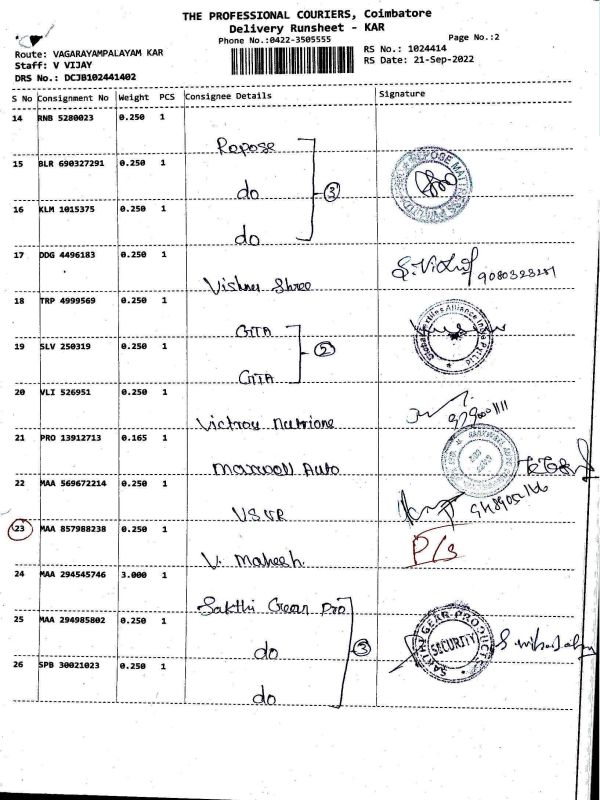 THE PROFESSIONAL COURIERS, Coimbatore
Delivery Runsheet - KAR
Phone No.:0422-3505555
Page No.:2
Route: VAGARAYAMPALAYAM KAR
Staff: V VIJAY
DRS No.: DCJB102441402
RS No.: 1024414
RS Date: 21-Sep-2022
S No Consignment No Weight PCS Consignee Details Signature
14 RNB 5280023 0.250 1
Repose
15 BLR 690327291 0.250 1
do
3
16 KLM 1015375 0.250 1
do
17 DDG 4496183 0.250 1
Vishnu Shree
18 TRP 4999569 0.250 1
GTA
19 SLV 250319 0.250 1
2
GTA
20 VLI 526951 0.250 1
21 PRO 13912713 0.165 1
Maxwell Auto
22 MAA 569672214 0.250 1
23 MAA 857988238 0.250 1
P/s
V. Mahesh.
24 MAA 294545746 3.000 1
Sakthi Gear Pro
25 MAA 294985802 0.250 1
do
3
SAKTHI GEAR PRODUCTS
SECURITY
26 SPB 30021023 0.250 1
do